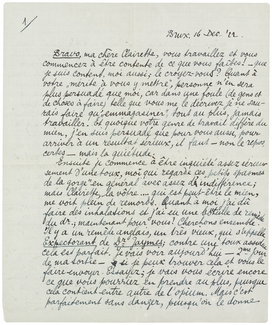 1
Brux. 16 Dec. '22.
Bravo, ma chère Clairette, vous travaillez et vous
commencez à être contente de ce que vous faites! — que
je suis content, moi aussi, le croyez-vous? Quant à
votre "mérite à vous y mettre", personne n'en sera
plus persuadé que moi, car dans une foule (de gens et
de choses à faire) telle que vous me le décrivez, je ne sau-
rais faire qu'emmagasiner tout au plus, jamais
travailler, et quoique votre genre de travail diffère du
mien, j'en suis persuadé que pour vous aussi, pour
arriver à un résultat sérieux, il faut — non le repos
certes — mais la quiétude.
Ensuite je commence à être inquiété assez sérieuse-
ment d'une toux, moi que regarde ces petits spasmes
de la gorge en général avec assez de indifférence;
mais Clairette, la vôtre — qui est peut-être le mien,
me voit plein de remords. Quant à moi j'ai dû
faire des inhalations et j'ai
du dr., maintenant pour vous! Cherchons ensemble.
Il y a un remède anglais, un très vieux, qui s'appelle
Expectorant de Dr. Jaymes; contre une toux
cela est parfait. Je vais voir aujourd'hui — jour
de ma sortie — si je peux trouver cela et vous le
faire envoyer. Essayez; je vais vous écrire encore
ce que vous pourriez en prendre au plus, puisque
cela contient entre autre de l'opium. Mais c'est
parfaitement sans danger, puisqu'on le donne